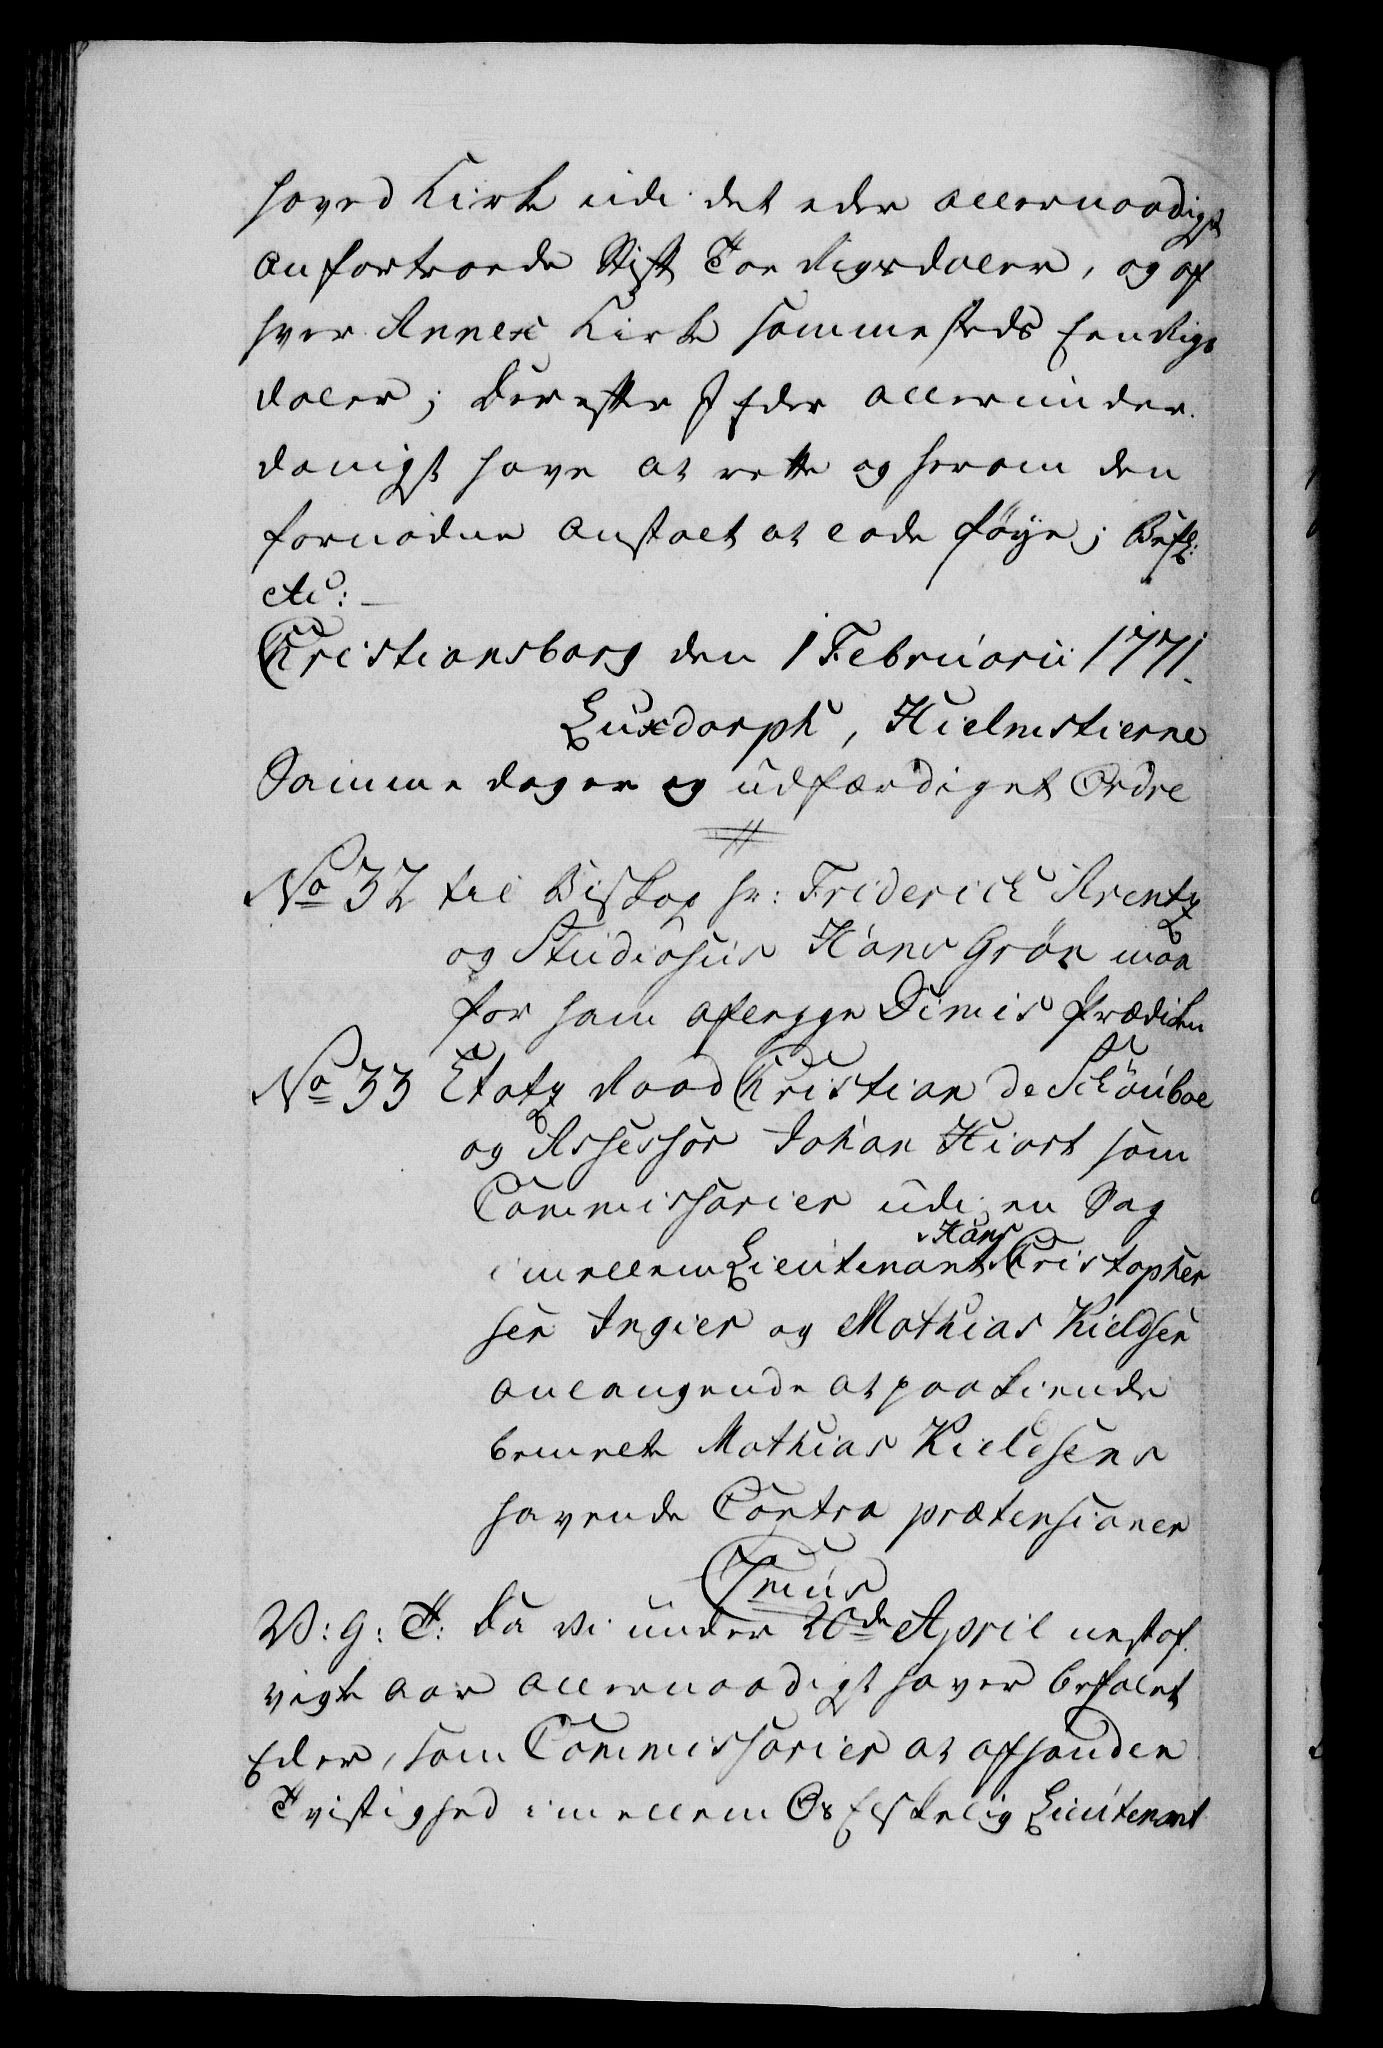 hoved Kirke udi det eder allernaadigst
anfortroede Stift Toe Rigsdaler, og af
hver Annex Kirke sammesteds Een Rigs
daler; Derefter I Eder allerunder
danigst have at rette og herom den
fornødne Anstalt at lade føye; Befl:
etc:
Christiansborg den 1 Februarii 1771.
Luxdorph, Hielmstierne
Samme dag er og udfærdiget Ordre
No 32 til Biskop hr: Friderich Arentz
og Studiosus Hans Grøn maa
for ham aflegge Dimis Prædiken
No 33 Etatz Raad Christian de Schouboe
og Assessor Johan Hiort som
Commissarier udi en Sag
imellem Lieutenant Hans Christopher
sen Ingier og Mathias Kieldsen
anlangende at paakiende
bemelte Mathias Kieldsens
havende Contra prætensioner
V: G: T: Da Vi under 20de April nestaf
vigte Aar allernaadigst haver befalet
Eder, som Commissarier at afhandle
Tvistighed imellem Os Elskelig Lieutenant